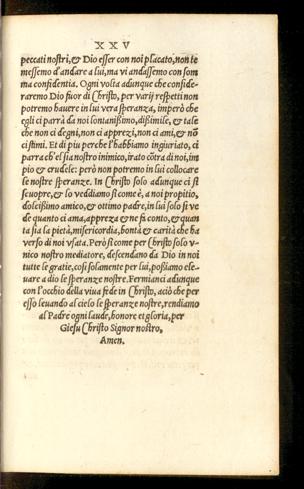 XXV
peccati nostri, & Dio esser con noi placato, non te
messemo d'andare a lui, ma vi andassemo con som
ma confidentia. Ogni volta adunque che conside-
raremo Dio fuor di Christo, per varij respetti non
potremo hauere in lui vera speranza, imperò che
egli ci parrà da noi lontanissimo, dissimile, & tale
che non ci degni, non ci apprezi, non ci ami, & nõ
ci stimi. Et di piu perche l'habbiamo ingiuriato, ci
parra ch'el sia nostro inimico, irato cõtra di noi, im
pio & crudele: però non potremo in lui collocare
le nostre speranze. In Christo solo adunque ci si
scuopre, & lo veddiamo sì com'è, a noi propitio,
dolcissimo amico, & ottimo padre, in lui solo si ve
de quanto ci ama, appreza & ne fi conto, & quan
ta sia la pietà, misericordia, bontà & carità che ha
verso di noi vsata. Però sì come per Christo solo v-
nico nostro mediatore, descendano da Dio in noi
tutte le gratie, così solamente per lui, possiamo ele-
uare a dio le speranze nostre. Fermianci adunque
con l'occhio della viua fede in Christo, aciò che per
esso leuando al cielo le speranze nostre, rendiamo
al Padre ogni laude, honore et gloria, per
Giesu Christo Signor nostro,
Amen.